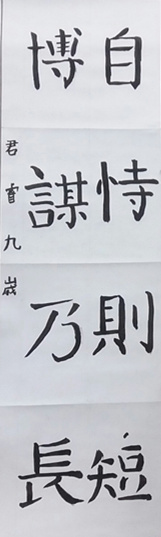 自恃則短
博謀乃長
君睿九歲